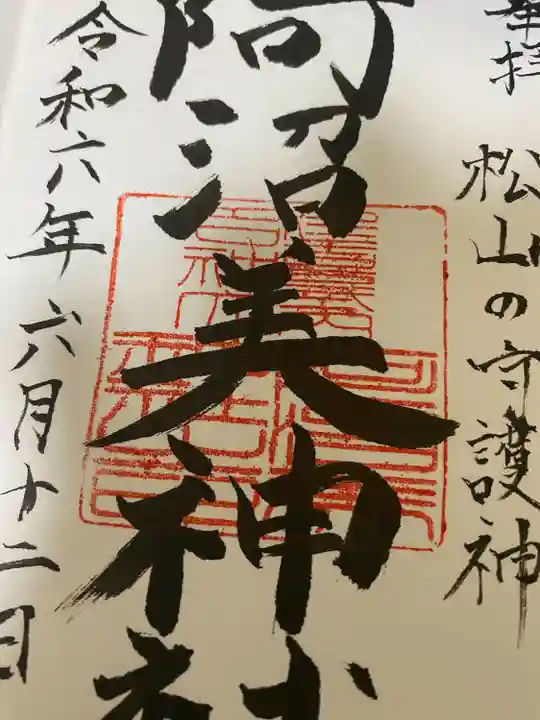 奉拝 松山の守護神
阿沼美神社
令和六年六月十二日